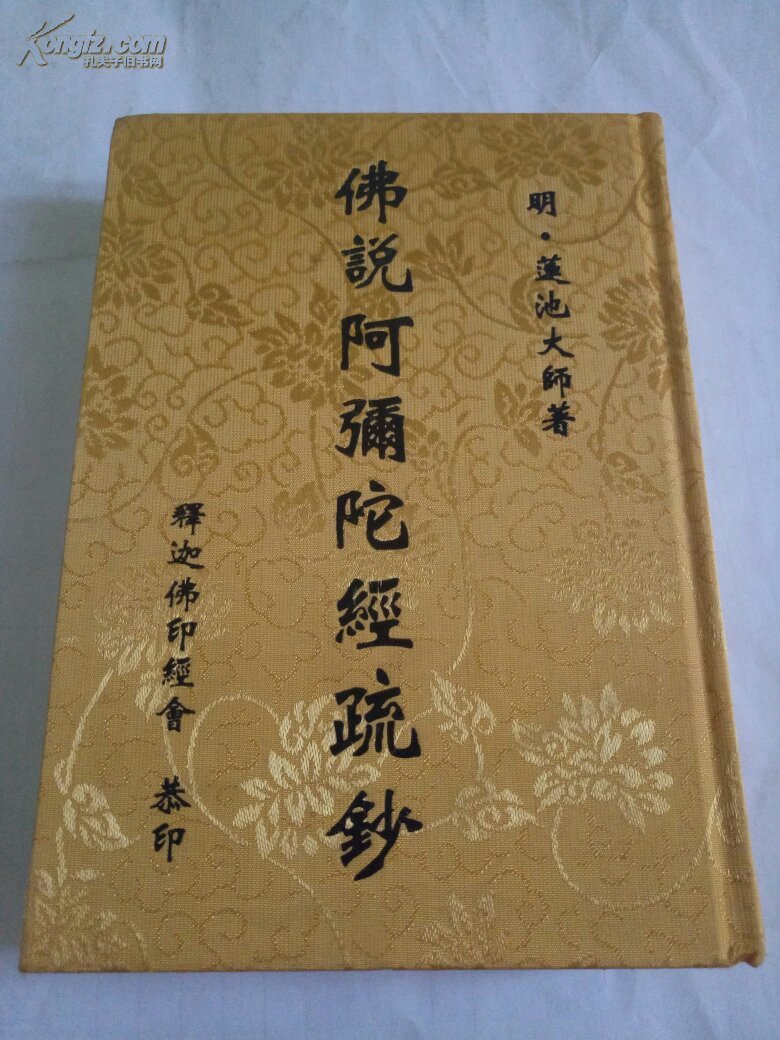 Kongfz.com
孔夫子旧书网
明·蓮池大師著
佛説阿彌陀經疏鈔
釋迦佛印經會 恭印